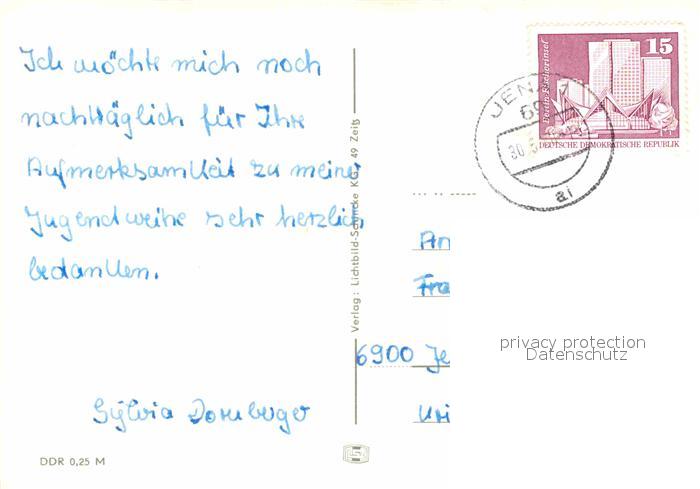 Ich möchte mich noch
nachträglich für Ihre
Aufmerksamkeit zu meiner
Jugendweihe sehr herzlich
bedanken.
Sylvia Dornberger
DDR 0,25 M
Verlag: Lichtbild-Schincke KG, 49 Zeitz
15
Berlin Fischerinsel
DEUTSCHE DEMOKRATISCHE REPUBLIK
JENA 1
69
30.5
ai
An
Fra
6900 Je
privacy protection
Datenschutz